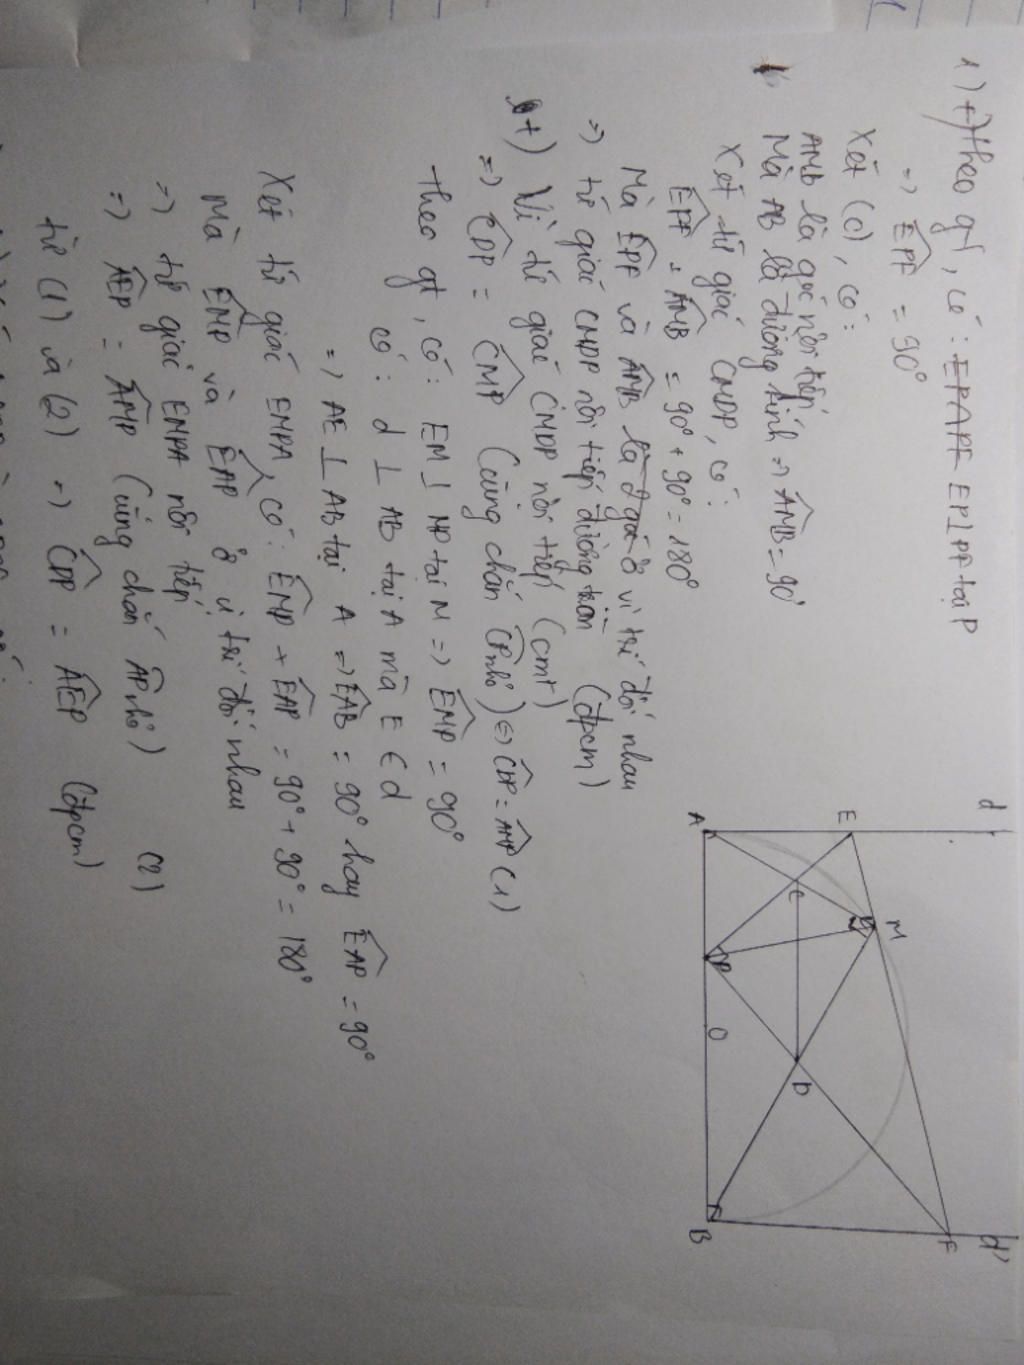 1) +) Theo gt, có: EPAPF EP⊥PF tại P
=> EPF = 90°
Xét (O), có:
AMB là góc nội tiếp
Mà AB là đường kính => AMB = 90°
Xét tứ giác CMDP, có:
EPF + AMB = 90° + 90° = 180°
Mà EPF và AMB là 2 góc ở vị trí đối nhau
=> tứ giác CMDP nội tiếp đường tròn (đpcm)
+) Vì tứ giác CMDP nội tiếp (cmt)
=> CDP = CMP (cùng chắn CP nhỏ) <=> CDP = AMP (1)
Theo gt, có: EM ⊥ MP tại M => EMP = 90°
có: d ⊥ AB tại A mà E ∈ d
=> AE ⊥ AB tại A => EAB = 90° hay EAP = 90°
Xét tứ giác EMPA, có: EMP + EAP = 90° + 90° = 180°
Mà EMP và EAP ở vị trí đối nhau
=> tứ giác EMPA nội tiếp
=> AEP = AMP (cùng chắn AP nhỏ) (2)
từ (1) và (2) => CDP = AEP (đpcm)
d
E
A
M
C
P
O
D
B
F
d'